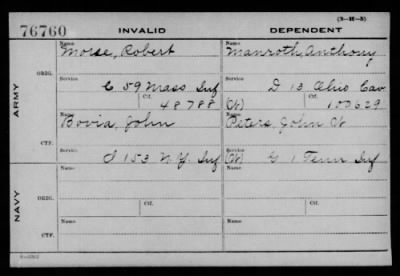 (3-16-3)
76760 INVALID DEPENDENT
Name Name
Morse, Robert Manroth, Anthony
ORIG. Service Service
C 59 Mass Inf D 13 Ohio Cav
Ctf. Ctf.
48788 (W) 100629
ARMY
Name Name
Bovia, John Peters, John W
CTF. Service Service
I 153 N.Y. Inf (W) G 1 Tenn Inf
Name Name
ORIG.
Ctf. Ctf.
NAVY
Name Name
CTF.